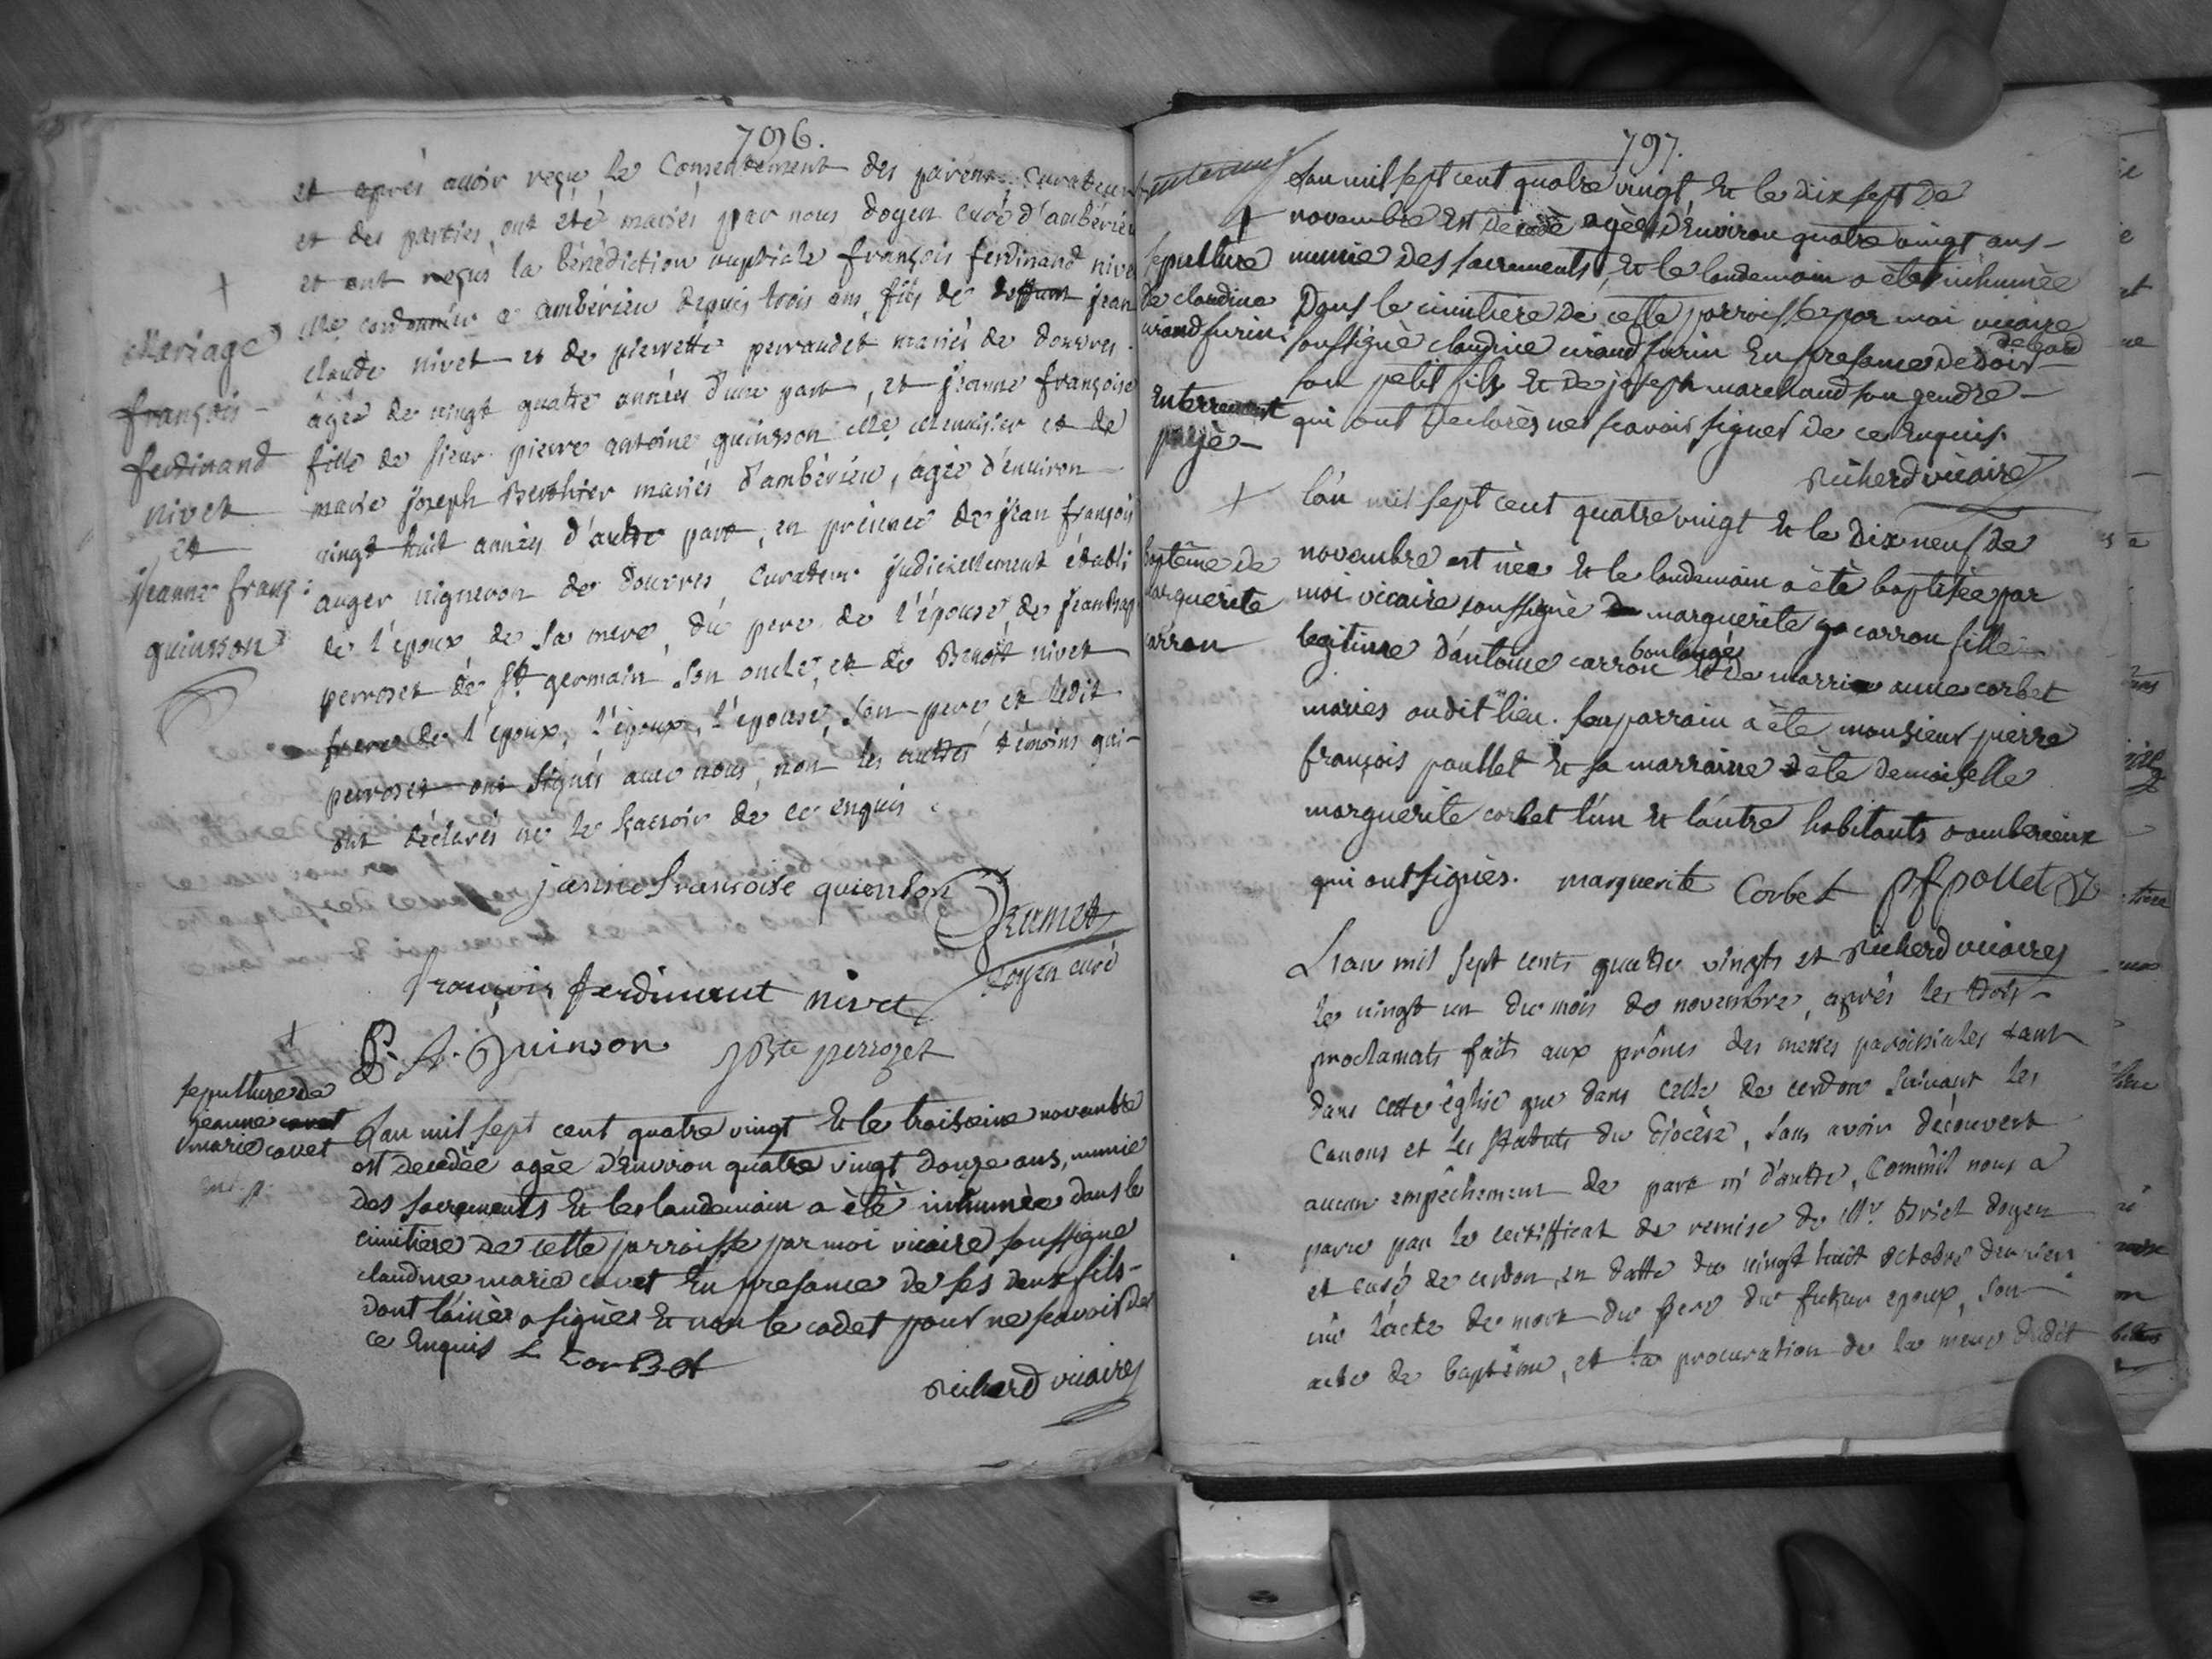 796.
et aprés avoir reçu le Consentement des parens, Curateur
et des parties, ont été mariés par nous doyen curé d'ambérieu
et ont reçus la bénédiction nuptiale françois ferdinand nivet
Me cordonnier a ambérieu depuis trois ans, fils de deffunt jean
claude nivet et de pierrette perraudet mariés de douvres
âgée de vingt quatre années d'une part, et jeanne françoise
fille de sieur pierre antoine guinsson Me Menuisier et de
marie joseph Berthier mariés d'ambérieu, agée d'environ
vingt huit années d'autre part, en présence de jean françois
auger vigneron de douvres Curateur judiciellement établi
de l'époux, de sa mere, du pere de l'épouse, de jean bap
perroset de st germain son oncle, et de Benoît nivet
frere de l'epoux, l'époux, l'epouse, son pere et ledit
perroset ont signés avec nous, non les autres témoins qui
ont déclarés ne le sçavoir de ce enquis.
Mariage
françois
ferdinand
nivet
et
jeanne franç:
guinsson
janne francoise quienson
doyen curé
françois ferdinant nivet
P. A. Guinson
jBte perrozet
sepulture de
jeanne covet
marie covet
Lan mil sept cent quatre vingt Et le troiseime novembre
est decedée agée d'Environ quatre vingt douze ans, munie
des sacrements Et le landemain a èté inhumée dans le
cimitiere de cette parroisse par moi vicaire soussigne
claudine marie covet En presance de ses deux fils
dont l'ainèr a signèr Et non le cadet pour ne scavoir de
ce Enquis L Corbet
Richerd vicaire
797.
Lan mil sept cent quatre vingt Et le dix sept de
novembre Est decedè agée d'Environ quatre vingt ans
munie des sacrements, Et le landemain a été inhumèe
Dans le cimitiere de cette parroisse par moi vicaire
soussignè claudine urand furin En presance de
son petit fils Et de joseph marchand son gendre
qui ont declarès ne scavoir signer de ce Enquis.
Richerd vicaire
sepulture
de claudine
urand furin
Enterrement
payè
baptême de
marguerite
carron
l'an mil sept cent quatre vingt Et le dix neuf de
novembre est née Et le landemain a été baptisée par
moi vicaire soussignè marguerite carron fille
legitime d'antoine carron boulangé Et de marrie anne corbet
mariés au dit lieu. son parrain a été monsieur pierre
françois paullet Et sa marraine a été demoiselle
marguerite corbet l'un Et l'autre habitants a amberieux
qui ont signès. marguerite Corbet pfpollet
Richerd vicaire
L'an mil sept cents quatre vingts et
le vingt un du mois de novembre, aprés les trois
proclamats faits aux prônes des messes paroissiales tant
dans cette église que dans celle de cerdon suivant les
Canons et les statuts du diocèse, sans avoir découvert
aucun empêchement de part ni d'autre, Comm'il nous a
paru par le certifficat de remise de Mr. Briet doyen
et curé de cerdon, en datte du vingt huit octobre dernier
vu l'acte de mort du pere du futur epoux, son
acte de baptême, et la procuration de la mere dudit